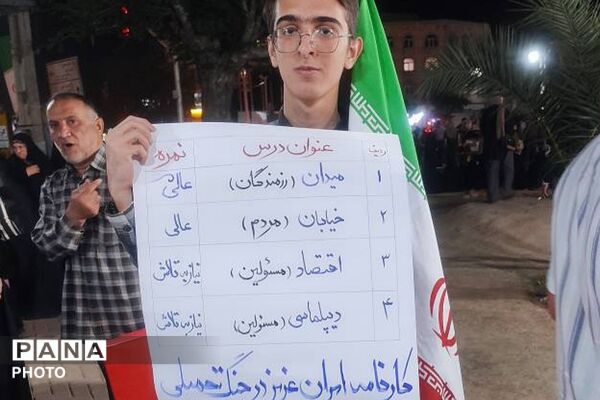 ردیف عنوان درس نمره
۱ میدان (رزمندگان) عالی
۲ خیابان (مردم) عالی
۳ اقتصاد (مسئولین) نیاز به تلاش
۴ دیپلماسی (مسئولین) نیاز به تلاش
کارنامه ایران عزیز در جنگ تحمیلی
PANA
PHOTO